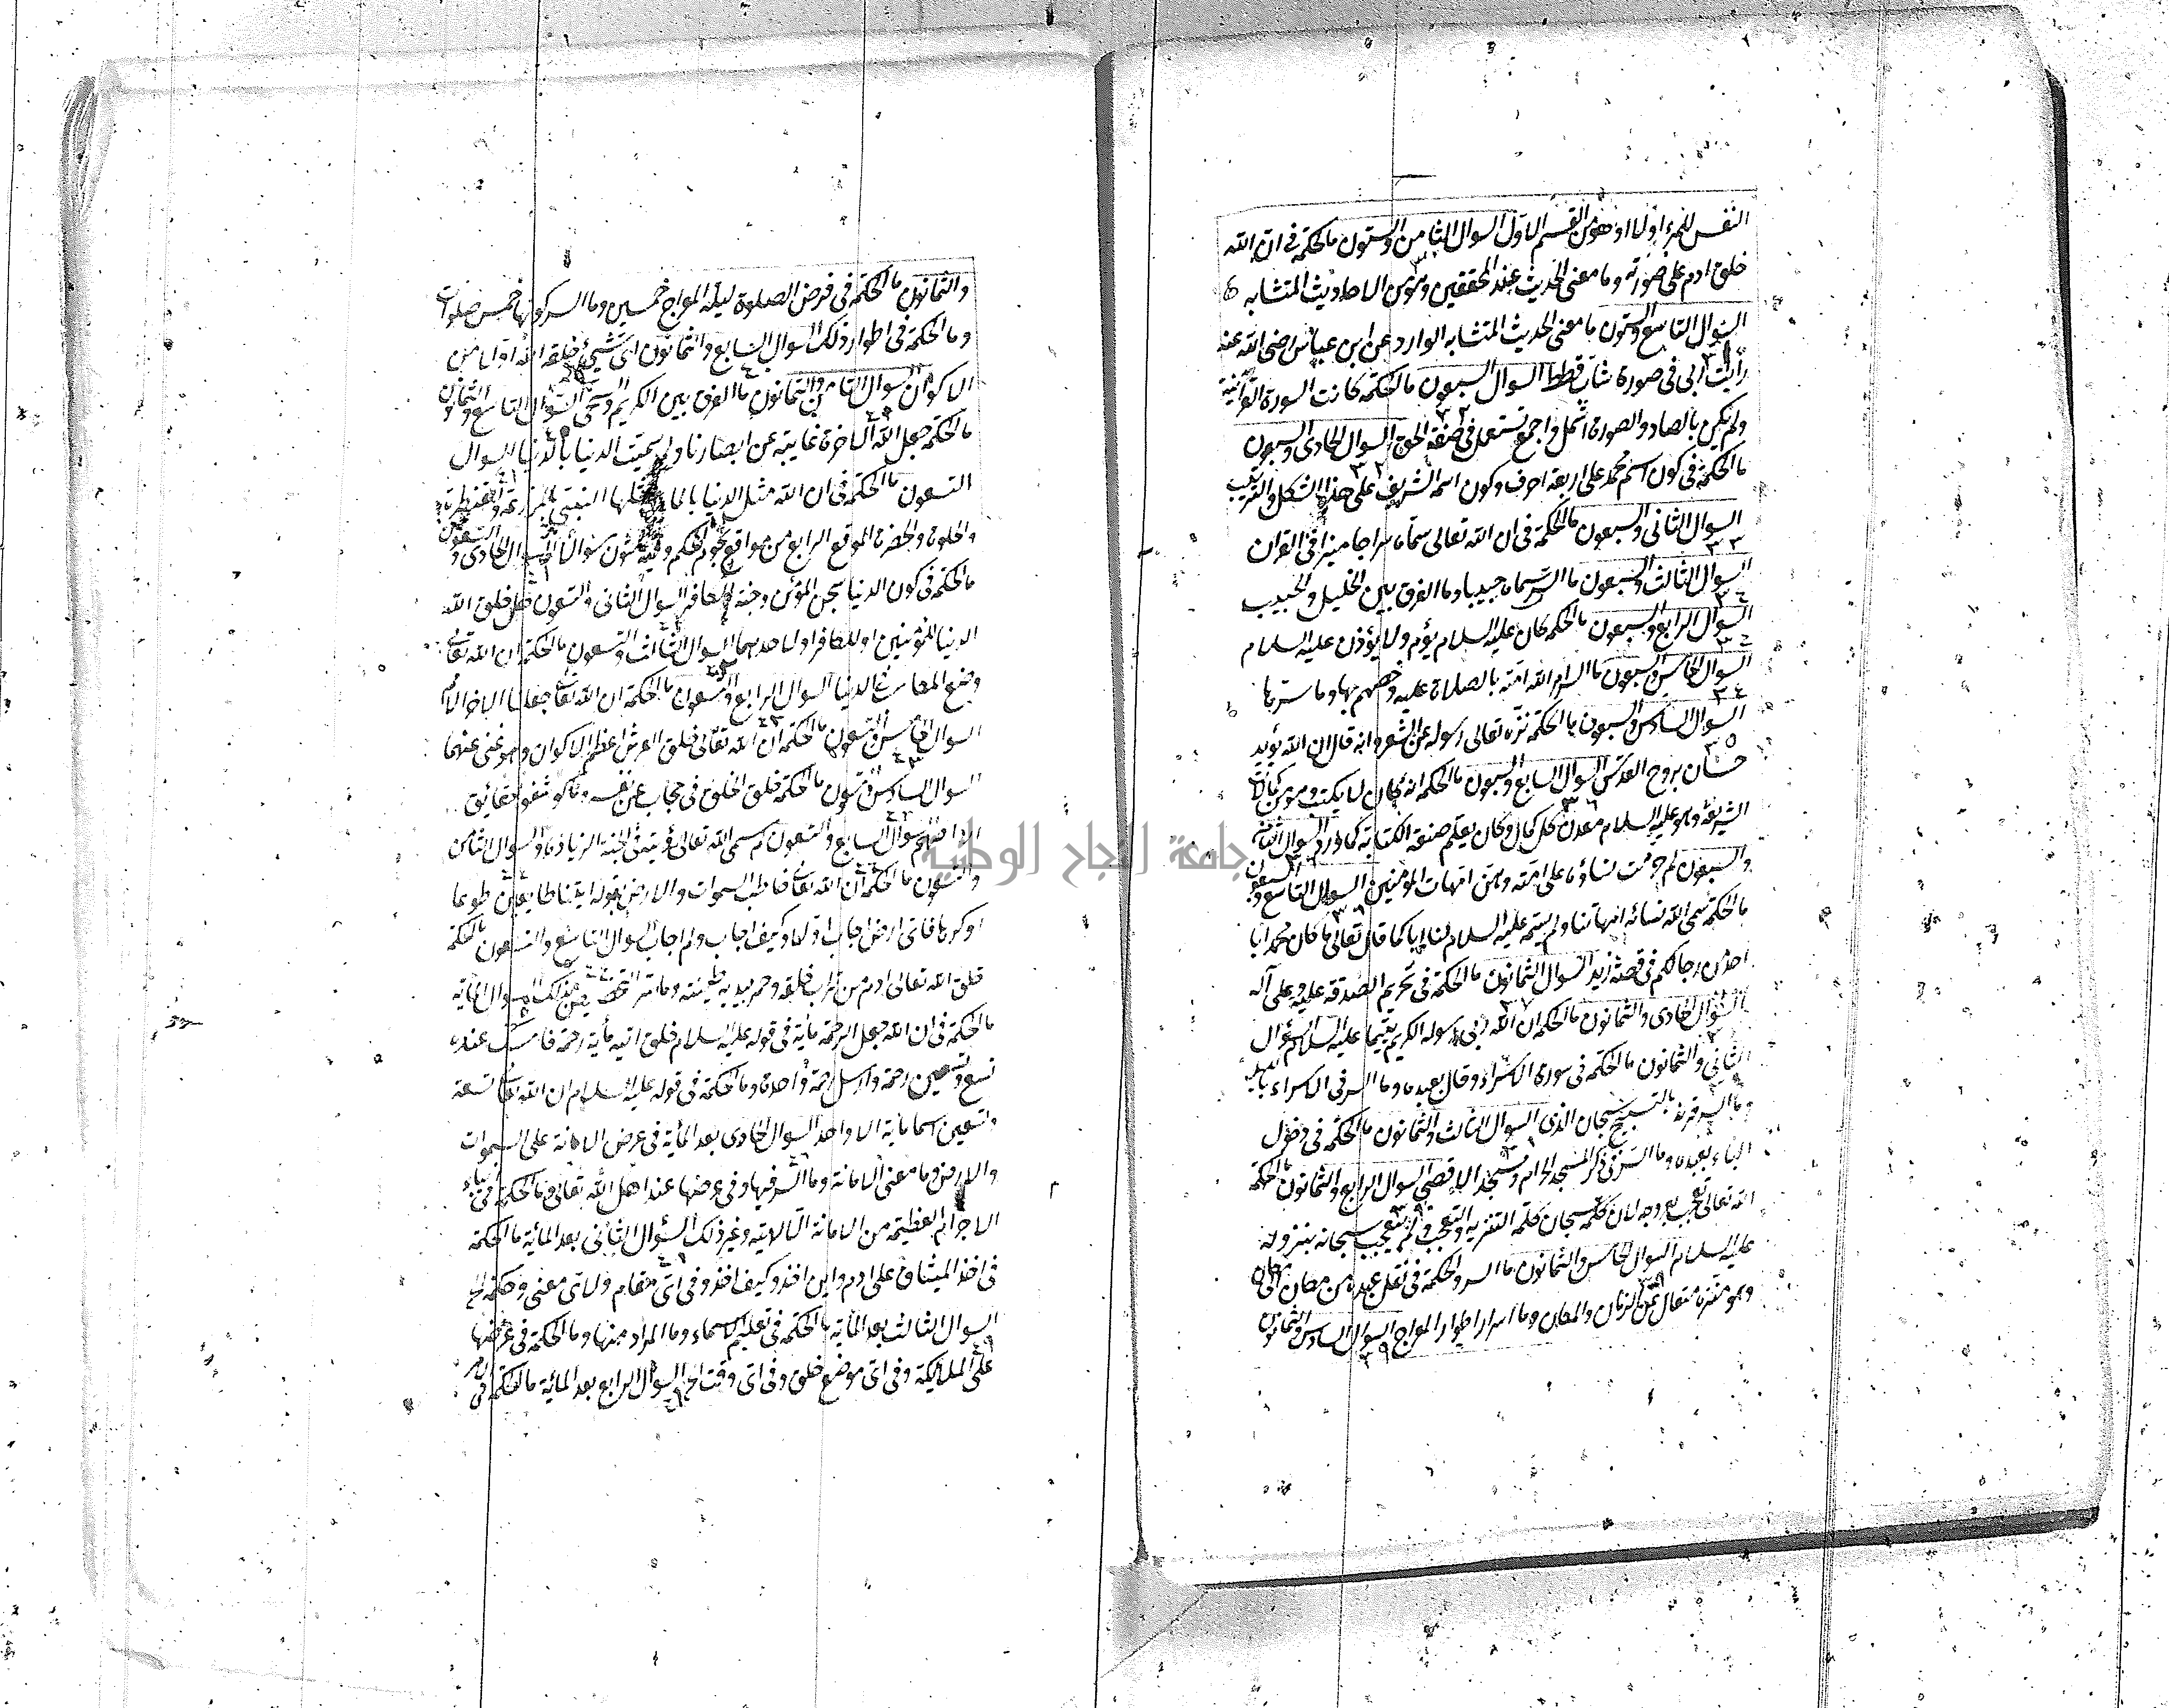 النفس للمرء اولا او هو من القسم الاول السوال الثامن والستون ما الحكمة في ان الله
خلق ادم على صورته وما معنى الحديث عند المحققين وهو من الاحاديث المتشابه
السوال التاسع والستون ما معنى الحديث المتشابه الوارد عن ابن عباس رضى الله عنه
رأيت ربي في صورة شاب قطط السوال السبعون ما الحكمة كانت السورة القرآنية
ولم تكن بالصاد والصورة اشمل واجمع تستعمل في صفة الحق السوال الحادى والسبعون
ما الحكمة في كون اسم محمد على اربعة احرف وكون اسمه الشريف على هذا الشكل والترتيب
السوال الثانى والسبعون ما الحكمة في ان الله تعالى سماه سراجا منيرا في القران
السوال الثالث والسبعون ما السر سماه حبيبا وما الفرق بين الخليل والحبيب
السوال الرابع والسبعون ما الحكمة كان عليه السلام يؤم ولا يؤذن عليه السلام
السوال الخامس والسبعون ما السر امر الله امته بالصلاة عليه وخصهم بها وما سترها
السوال السادس والسبعون ما الحكمة نزه تعالى رسوله عن الشعر وانه قال ان الله يؤيد
حسان بروح القدس السوال السابع والسبعون ما الحكمة انه كان لا يكتب وهو من كمالات
الشريفة وهو عليه السلام معدن كل كمال وكان يعلم صنعة الكتابة كما ورد السوال الثامن
والسبعون لم حرمت نساؤه على امته وهن امهات المؤمنين السوال التاسع والسبعون
ما الحكمة سمى الله نسائه امهاتنا ولم يسمه عليه السلام لنا ابا كما قال تعالى ما كان محمد ابا
احد من رجالكم في قصة زيد السوال الثمانون ما الحكمة في تحريم الصدقة عليه وعلى آله
السوال الحادى والثمانون ما الحكمة ان الله ربى رسوله الكريم يتيما عليه السلام السؤال
الثانى والثمانون ما الحكمة في سورة الاسراء وقال بعبده وما السر في الاسراء بالليل
وما السر قرنه بالتسبيح سبحان الذى السوال الثالث والثمانون ما الحكمة في دخول
الباء بعبده وما السر في ذكر المسجد الحرام ومسجد الاقصى السوال الرابع والثمانون ما الحكمة
الله تعالى تعجب بعروجه لان كلمة سبحان كلمة التنزيه والتعجب ولم يتعجب سبحانه بنزوله
عليه السلام السوال الخامس والثمانون ما السر والحكمة في نقل عبده من مكان الى مكان
وهو منزه متعال عن الزمان والمكان وما اسرار اطوار المعراج السوال السادس والثمانون
والثمانون ما الحكمة في فرض الصلوة ليلة المعراج خمسين وما السر كونها خمس صلوات
وما الحكمة في اطوار ذلك السوال السابع والثمانون اى شيئ خلقه الله اولا من
الاكوان السوال الثامن والثمانون ما الفرق بين الكريم والسخى السؤال التاسع والثمانون
ما الحكمة جعل الله الاخرة غايبة عن ابصارنا ولم سميت الدنيا بالدنيا السوال
التسعون ما الحكمة في ان الله مثل الدنيا بالماء ومثلها النبي بالمزرعة والقنطرة
والحلوة والخضرة الموقع الرابع من مواقع نجوم الحكم وفيه ثلثون سوالا السوال الحادى والتسعون
ما الحكمة في كون الدنيا سجن المؤمن وجنة الكافر السوال الثانى والتسعون هل خلق الله
الدنيا للمؤمنين او للكافر او لاحدهما السوال الثالث والتسعون ما الحكمة ان الله تعالى
وضع المعاش في الدنيا السوال الرابع والتسعون ما الحكمة ان الله تعالى جعلنا اخر الامم
السوال الخامس والتسعون ما الحكمة ان الله تعالى خلق العرش اعظم الاكوان وهو غنى عنهما
السوال السادس والتسعون ما الحكمة خلق الخلق في حجاب عن نفسه
السوال السابع والتسعون لم سمى الله تعالى رؤيته في الجنة الزيادة السوال الثامن
والتسعون ما الحكمة ان الله تعالى خاطب السموات والارض بقوله ايتنا طايعين طوعا
او كرها فاى ارض اجاب اولا وكيف اجاب ولم اجاب السوال التاسع والتسعون ما الحكمة
خلق الله تعالى ادم من تراب خلقه وخمر بيديه طينته وما سر السوال المأية
ما الحكمة في ان الله جعل الرحمة مأية في قوله عليه السلام خلق الله مأية رحمة فامسك عنده
تسع وتسعين رحمة وارسل رحمة واحدة وما الحكمة في قوله عليه السلام ان الله تعالى تسعة
وتسعين اسما ماية الا واحد السوال الحادى بعد المأية في عرض الامانة على السموات
والارض وما معنى الامانة وما السر فيها وفي عرضها عند اهل الله تعالى وما الحكمة في اباء
الاجرام العظيمة من الامانة الالاهية وغير ذلك السؤال الثانى بعد المائية ما الحكمة
في اخذ الميثاق على ادم واين اخذ وكيف اخذ وفي اى مقام ولاى معنى وحكمة الخ
السوال الثالث بعد المأية ما الحكمة في تعليم الاسماء وما المراد منها وما الحكمة في عرضها
على الملايكة وفي اى موضع خلق وفي اى وقت الخ السوال الرابع بعد المائية ما الحكمة في امر
جامعة النجاح الوطنية